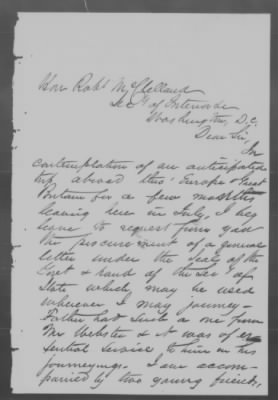 Hon Robt McClelland
Secy of Interior
Washington, D.C.
Dear Sir,
In
contemplation of an anticipated
trip abroad thro' Europe & Great
Britain for a few months
leaving here in July, I beg
leave to request from you
the procurement of a general
letter under the seal of the
Govt & hand of the Secy of
State which may be used
wherever I may journey-
Father had such a one from
Mr Webster & it was of es-
sential service to him in his
journeyings. I am accom-
panied by two young friends,